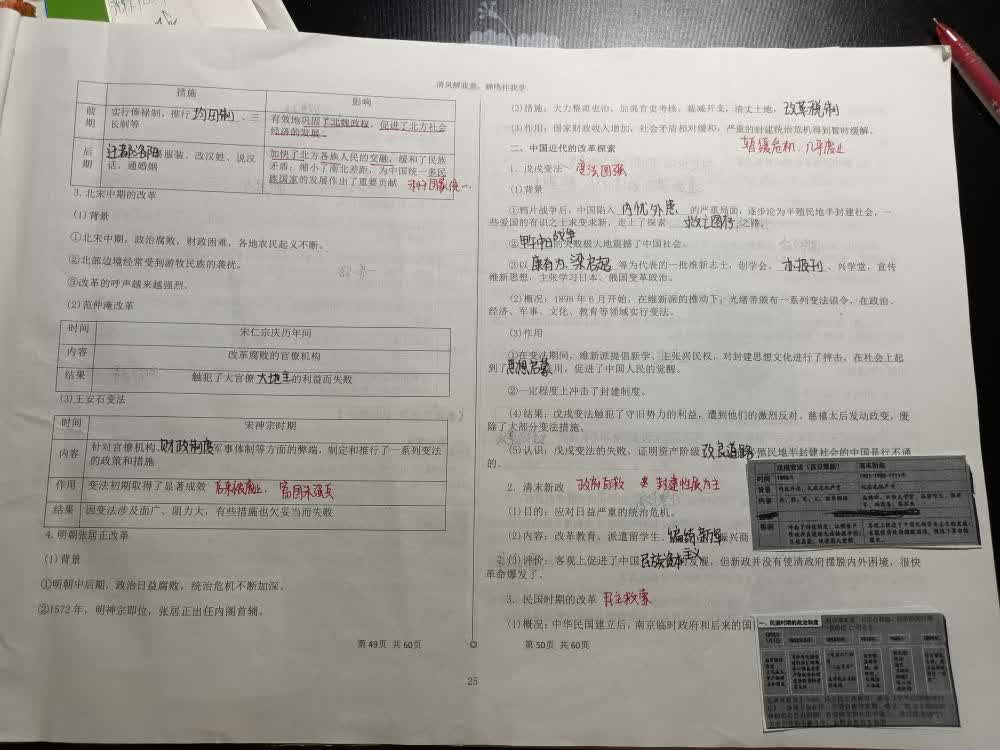 清风解我意，蝉鸣伴我学。
措施 影响
前期 实行俸禄制，推行均田制、三长制等 有效地巩固了北魏政权，促进了北方社会经济的发展。
后期 迁都洛阳 服装、改汉姓、说汉话、通婚姻 加快了北方各族人民的交融，缓和了民族矛盾；缩小了南北差距，为中国统一多民族国家的发展作出了重要贡献
3.北宋中期的改革
(1)背景
①北宋中期，政治腐败，财政困难，各地农民起义不断。
②北部边境经常受到游牧民族的袭扰。
③改革的呼声越来越强烈。
(2)范仲淹改革
时间 宋仁宗庆历年间
内容 改革腐败的官僚机构
结果 触犯了大官僚大地主的利益而失败
(3)王安石变法
时间 宋神宗时期
内容 针对官僚机构、财政制度军事体制等方面的弊端，制定和推行了一系列变法的政策和措施
作用 变法初期取得了显著成效 富国未强兵
结果 因变法涉及面广、阻力大，有些措施也欠妥当而失败
4.明朝张居正改革
(1)背景
①明朝中后期，政治日益腐败，统治危机不断加深。
②1572年，明神宗即位，张居正出任内阁首辅。
第49页 共60页
(2)措施：大力整顿吏治，加强官吏考核，裁减开支，清丈土地，改革税制
(3)作用：国家财政收入增加，社会矛盾相对缓和，严重的封建统治危机得到暂时缓解。
二、中国近代的改革探索
1．戊戌变法 变法图强
(1)背景
①鸦片战争后，中国陷入 内忧外患 的严重局面，逐步沦为半殖民地半封建社会，一
些爱国的有识之士求变求新，走上了探索 救亡图存 之路。
②甲午中日战争的失败极大地震撼了中国社会。
③以 康有为、梁启超 等为代表的一批维新志士，创学会、 办报刊 、兴学堂，宣传
维新思想，主张学习日本、俄国变革政治。
(2)概况：1898年6月开始，在维新派的推动下，光绪帝颁布一系列变法诏令，在政治、
经济、军事、文化、教育等领域实行变法。
(3)作用
①在变法期间，维新派提倡新学、主张兴民权，对封建思想文化进行了抨击，在社会上起
到了思想启蒙作用，促进了中国人民的觉醒。
②一定程度上冲击了封建制度。
(4)结果：戊戌变法触犯了守旧势力的利益，遭到他们的激烈反对。慈禧太后发动政变，废
除了大部分变法措施。
(5)认识：戊戌变法的失败，证明资产阶级改良道路 殖民地半封建社会的中国是行不通
的。
2．清末新政 政府自救 封建性质为主
(1)目的：应对日益严重的统治危机。
(2)内容：改革教育、派遣留学生、编练新军 振兴商
(3)评价：客观上促进了中国民族资本主义的发展，但新政并没有使清政府摆脱内外困境，很快
革命爆发了。
3．民国时期的改革 民主救国
(1)概况：中华民国建立后，南京临时政府和后来的国
第50页 共60页
一、民国时期的政治制度
25